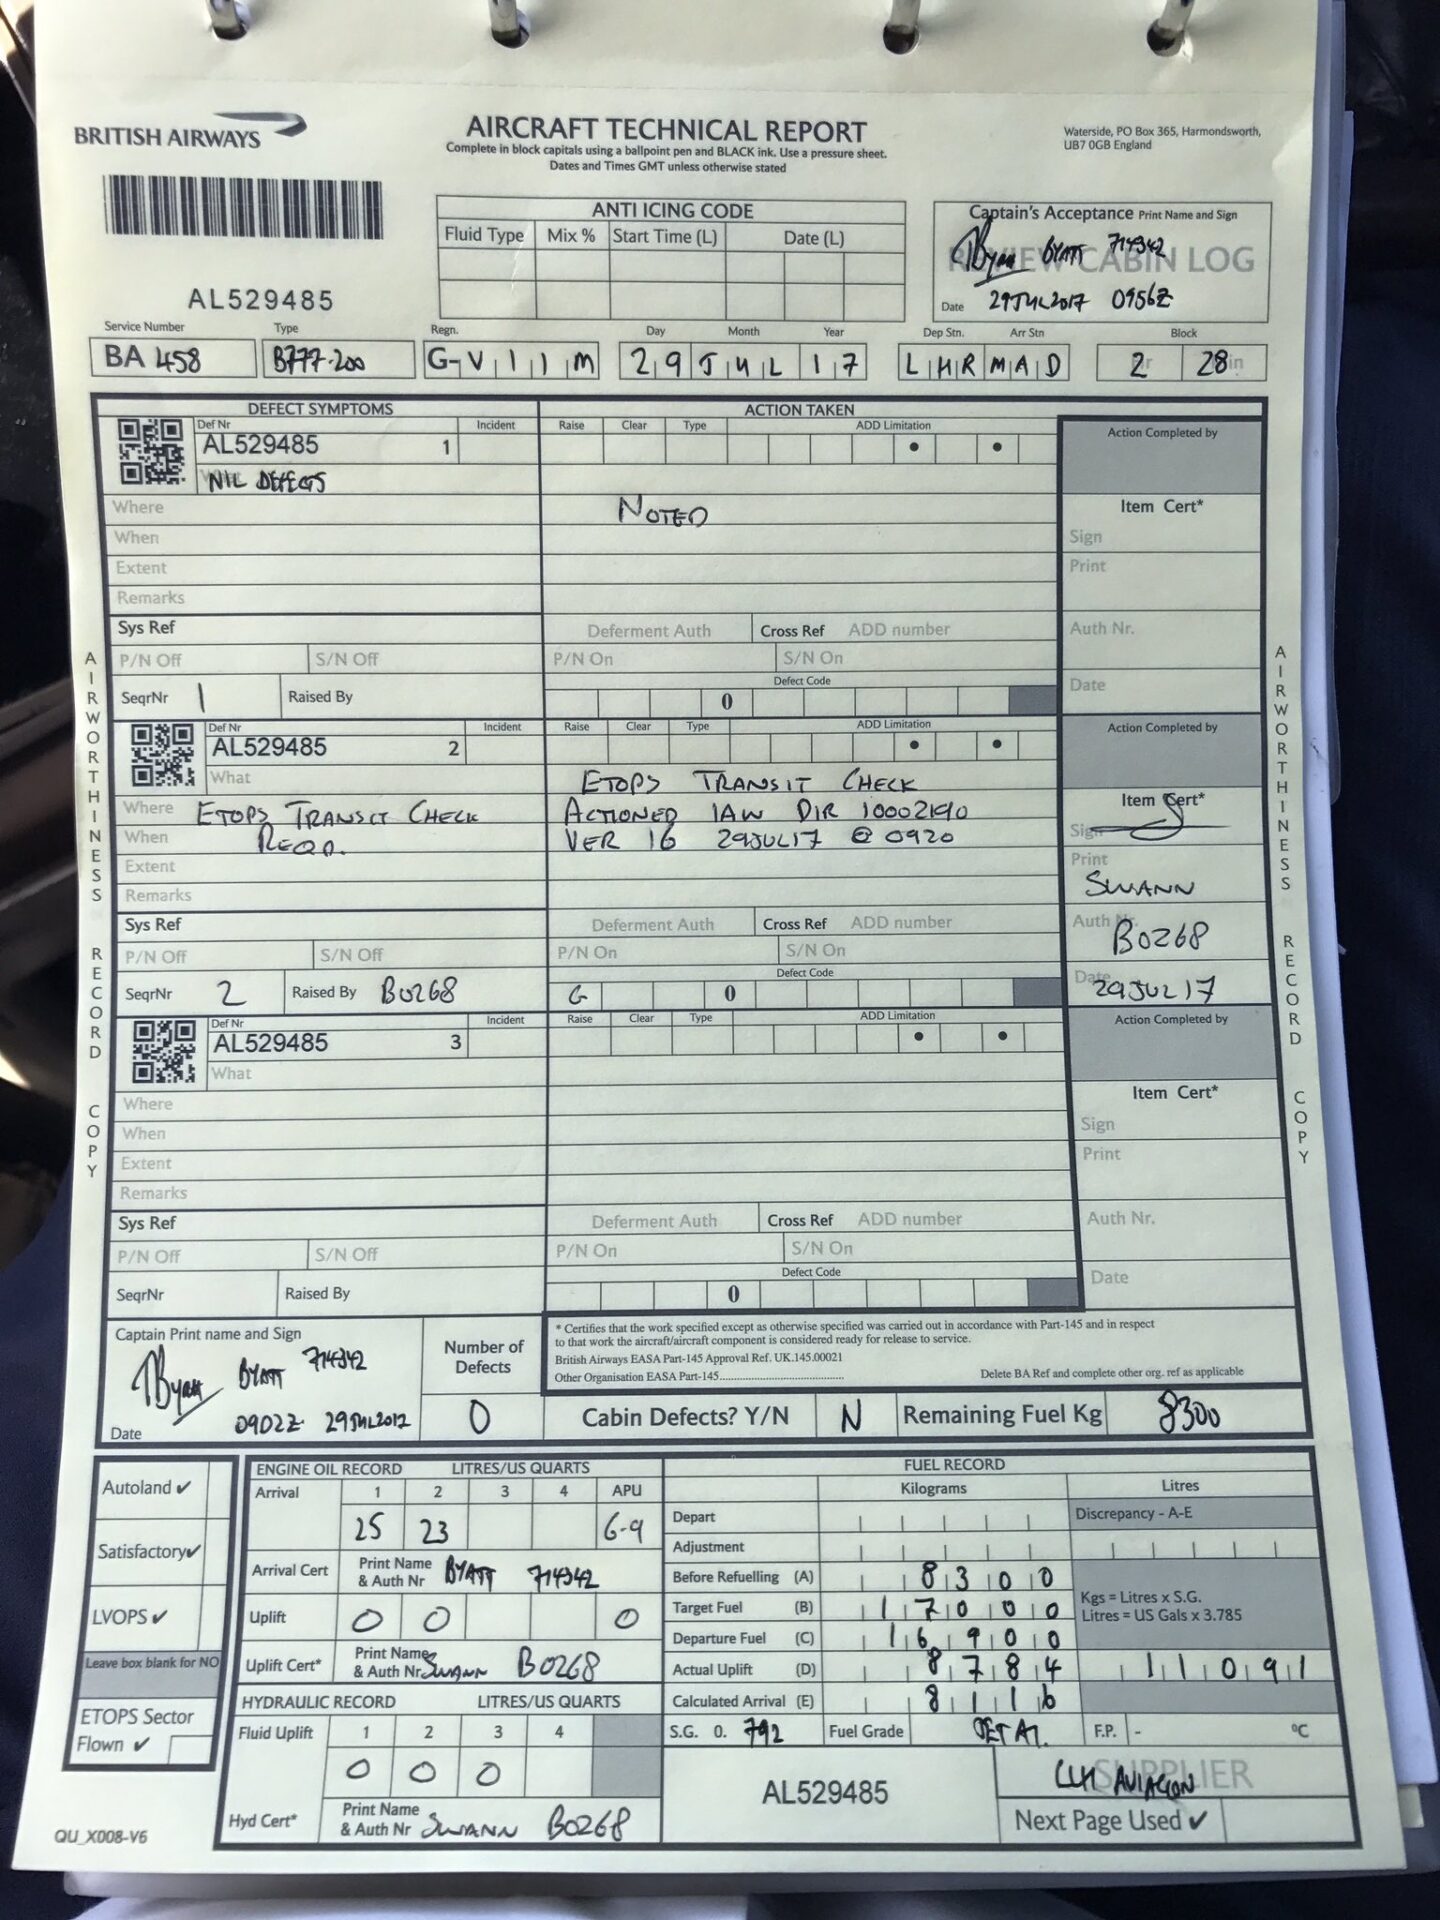 BRITISH AIRWAYS
AIRCRAFT TECHNICAL REPORT
Complete in block capitals using a ballpoint pen and BLACK ink. Use a pressure sheet.
Dates and Times GMT unless otherwise stated
Waterside, PO Box 365, Harmondsworth,
UB7 0GB England
AL529485
ANTI ICING CODE
Fluid Type Mix % Start Time (L) Date (L)
Captain's Acceptance Print Name and Sign
BYATT 714342
REVIEW CABIN LOG
Date 29JUL2017 0956Z
Service Number Type Regn. Day Month Year Dep Stn. Arr Stn Block
BA 458 B777-200 G-VIIM 29 JUL 17 LHR MAD 2 28 in
DEFECT SYMPTOMS ACTION TAKEN
Def Nr Incident Raise Clear Type ADD Limitation Action Completed by
AL529485 1
NIL DEFECTS
Where NOTED Item Cert*
When Sign
Extent Print
Remarks
Sys Ref Deferment Auth Cross Ref ADD number Auth Nr.
P/N Off S/N Off P/N On S/N On
Defect Code Date
SeqrNr 1 Raised By 0
Def Nr Incident Raise Clear Type ADD Limitation Action Completed by
AL529485 2
What ETOPS TRANSIT CHECK
Where ETOPS TRANSIT CHECK ACTIONED IAW DIR 10002190 Item Cert*
When REQD. VER 16 29JUL17 @ 0920 Sign
Extent Print
Remarks SWANN
Sys Ref Deferment Auth Cross Ref ADD number Auth Nr.
B0268
P/N Off S/N Off P/N On S/N On
Defect Code Date
SeqrNr 2 Raised By B0268 G 0 29JUL17
Def Nr Incident Raise Clear Type ADD Limitation Action Completed by
AL529485 3
What
Where Item Cert*
When Sign
Extent Print
Remarks
Sys Ref Deferment Auth Cross Ref ADD number Auth Nr.
P/N Off S/N Off P/N On S/N On
Defect Code Date
SeqrNr Raised By 0
AIRWORTHINESS RECORD COPY
AIRWORTHINESS RECORD COPY
Captain Print name and Sign
BYATT 714342
Date 0902Z 29JUL2017
Number of Defects
0
* Certifies that the work specified except as otherwise specified was carried out in accordance with Part-145 and in respect
to that work the aircraft/aircraft component is considered ready for release to service.
British Airways EASA Part-145 Approval Ref. UK.145.00021
Other Organisation EASA Part-145 Delete BA Ref and complete other org. ref as applicable
Cabin Defects? Y/N N Remaining Fuel Kg 8300
Autoland ✓
Satisfactory ✓
LVOPS ✓
Leave box blank for NO
ETOPS Sector
Flown ✓
ENGINE OIL RECORD LITRES/US QUARTS
Arrival 1 2 3 4 APU
25 23 6-9
Arrival Cert Print Name
& Auth Nr BYATT 714342
Uplift 0 0 0
Uplift Cert* Print Name
& Auth Nr SWANN B0268
HYDRAULIC RECORD LITRES/US QUARTS
Fluid Uplift 1 2 3 4
0 0 0
Hyd Cert* Print Name
& Auth Nr SWANN B0268
FUEL RECORD
Kilograms Litres
Depart Discrepancy - A-E
Adjustment
Before Refuelling (A) 8300
Kgs = Litres x S.G.
Litres = US Gals x 3.785
Target Fuel (B) 17000
Departure Fuel (C) 16900
Actual Uplift (D) 8784 11091
Calculated Arrival (E) 8116
S.G. 0. 792 Fuel Grade JET A1. F.P. - °C
AL529485
SUPPLIER
AVIACION
Next Page Used ✓
QU_X008-V6